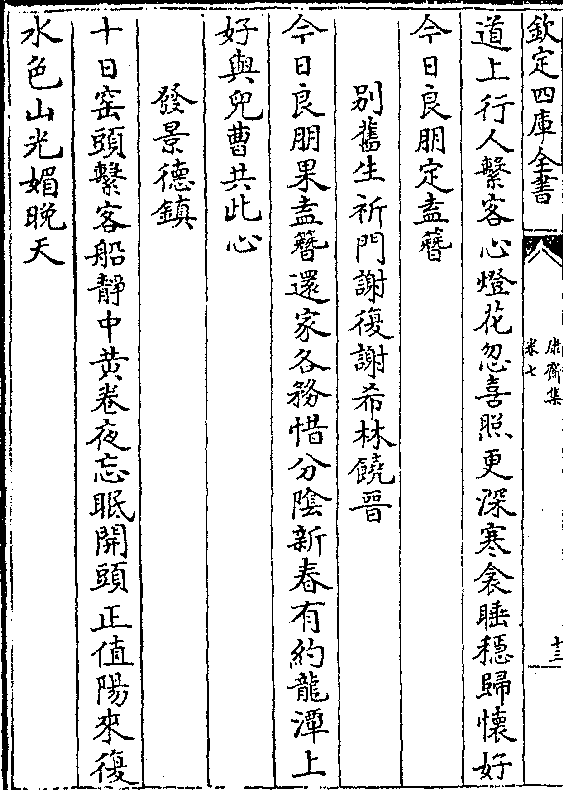 欽定四庫全書
康齋集
卷七
十三
道上行人繫客心燈花忽喜照更深寒衾睡穩歸懷好
今日良朋定盍簪
別舊生祈門謝復謝希林饒晉
今日良朋果盍簪還家各務惜分陰新春有約龍潭上
好與兒曹共此心
發景德鎮
十日窑頭繫客船靜中黄卷夜忘眠開頭正值陽來復
水色山光媚晚天